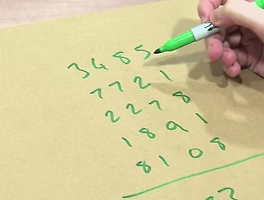 3485
7721
2278
1891
8108